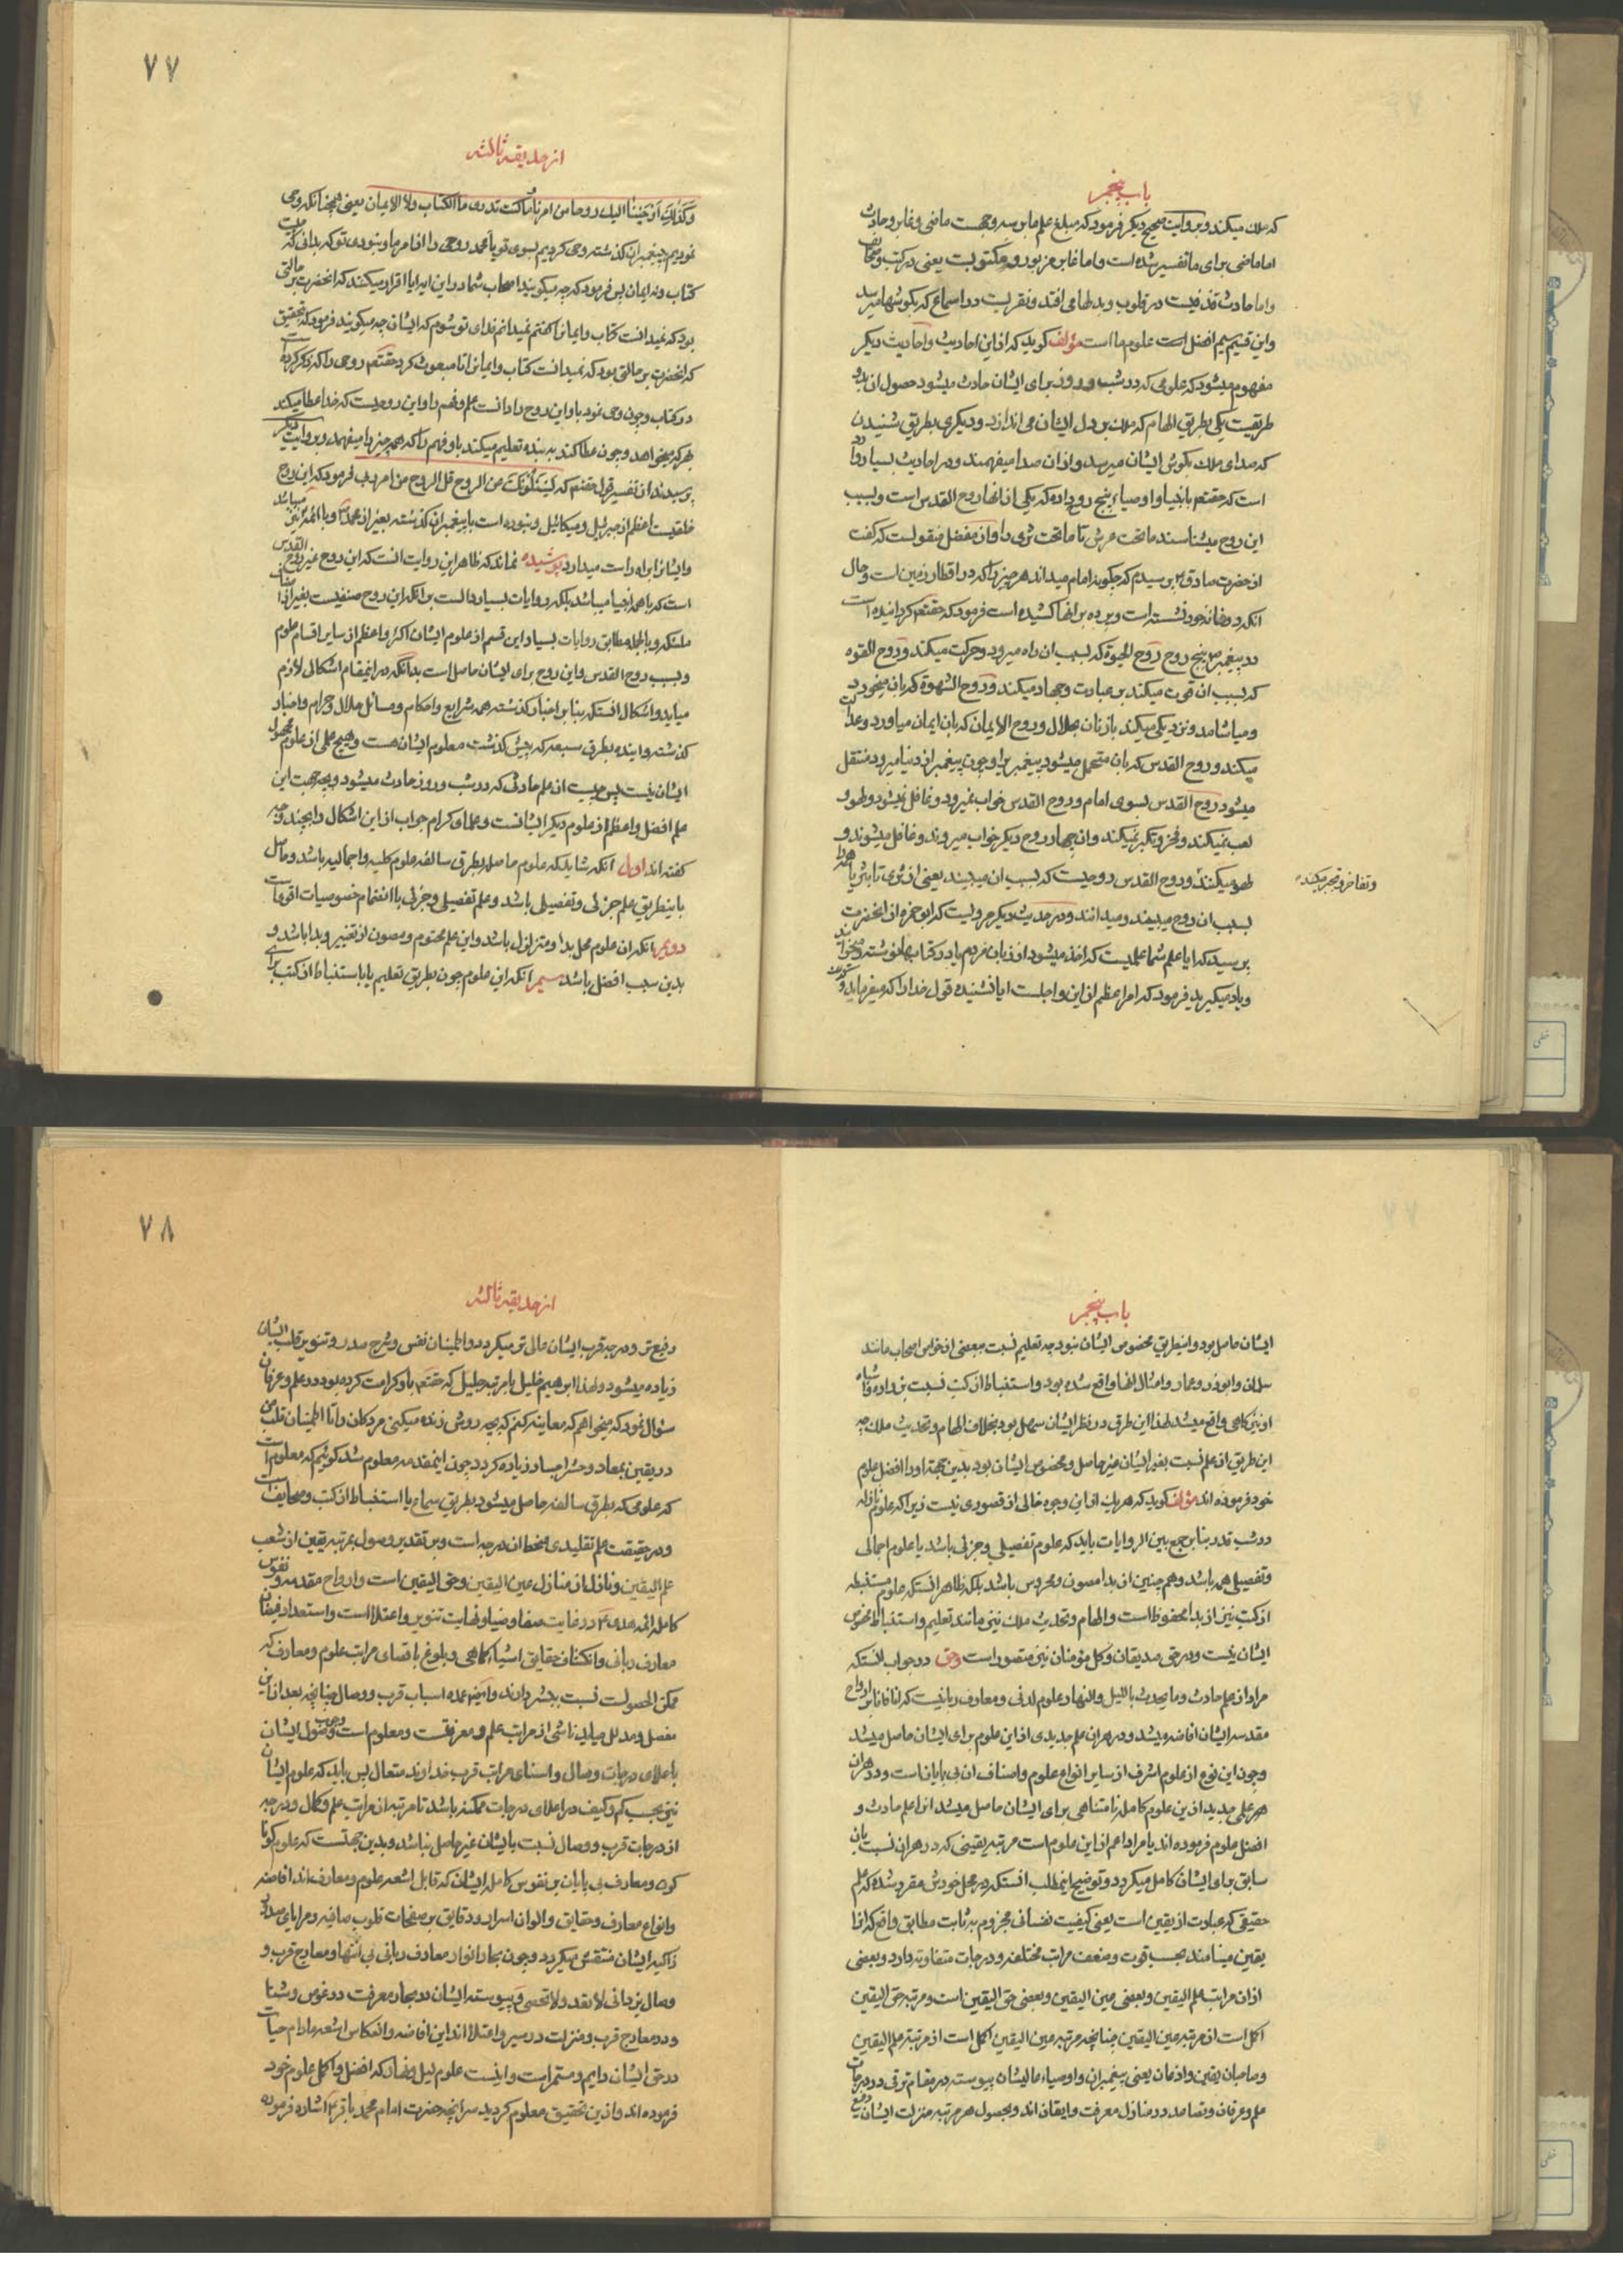 باب پنجم
که ملک میکند و بروایت صحیح دیکر فرمود که مبلغ علم ما بر سه وجهست ماضی و غابر و حادث
اما ماضی برای ما تفسیر شده است و اما غابر مزبور و مکتوبست یعنی در کتب و صحایف
و اما حادث قذفیست در قلوب و بدلها می افتد و نقریست در اسماع که بکوشها میرسد
و این قسیم سیم افضل است علوم ما است مؤلف کوید که از این احادیث و احادیث دیکر
مفهوم میشود که علومی که در شب و روز برای ایشان حادث میشود حصول آن بدو
طریقست یکی بطریق الهام که ملک بر دل ایشان می اندازد و دیکری بطریق شنیدن
که صدای ملک بکوش ایشان میرسد و از آن صدا میفهمند و در احادیث بسیار وارد
است که حقتعم بانبیا و اوصیاء پنج روح داده که یکی از آنها روح القدس است و بسبب
این روح میشناسند ما تحت عرش تا ما تحت ثری را و از مفضل منقولست که کفت
از حضرت صادق ع پرسیدم که چکونه امام میداند هر چیز را که در اقطار زمین است و حال
آنکه در خانه خود نشسته است و پرده بر آنها کشیده است فرمود که حقتعم کردانیده است
در پیغمبر ص پنج روح روح الحیوة که بسبب آن راه میرود و حرکت میکند و روح القوه
که بسبب آن قوت میکند بر عبادت و جهاد میکند و روح الشهوة که بآن میخورد
و میاشامد و نزدیکی میکند با زنان بحلال و روح الایمان که بآن ایمان میاورد و عدالت
میکند و روح القدس که بآن متحمل میشود پیغمبریرا و چون پیغمبر از دنیا میرود منتقل
میشود روح القدس بسوی امام و روح القدس خواب نمیرود و غافل نمیشود و لهو و
لعب نمیکند و فخر و تکبر نمیکند و آن چهار روح دیکر خواب میروند و غافل میشوند و
لهو میکنند و روح القدس روحیست که بسبب آن میبیند یعنی از ثری تا بثریا همه را
و تفاخر و تجبر میکنند
بسبب آن روح میبیند و میدانند و در حدیث دیکر مرویست که ابو حمزه از آنحضرت
پرسید که آیا علم شما علمیست که اخذ میشود از زبان مردم یا در کتابها نوشته میخوانید
و یاد میکیرید فرمود که امر اعظم از این و اجلست آیا نشنیده قول خدا را که میفرماید
۷۷
از حدیقه ثالثه
وَکَذلِکَ أَوْحَیْنا الیک روحا من امرنا ما کنت تدری ما الکتاب ولا الایمان یعنی همچنانکه وحی
نمودیم پیغمبران کذشته وحی کردیم بسوی تو یا محمد روحی را از امر ما و نبودی تو که بدانی که چیست
کتاب و نه ایمان پس فرمود که چه میکویند اصحاب شما در این آیه آیا اقرار میکنند که آنحضرت بر حالتی
بود که نمیدانست کتاب و ایمانرا کفتم نمیدانم فدای تو شوم که ایشان چه میکویند فرمود که بتحقیق
که آنحضرت بر حالتی بود که نمیدانست کتاب و ایمانرا تا مبعوث کرد حقتعم روحی را که ذکر کرده است
در کتاب و چون وحی نمود باو این روح را دانست علم و فهم را و این روحیست که خدا عطا میکند
بهر که میخواهد و چون عطا کند به بنده تعلیم میکند باو فهم را که همه چیز را میفهمد و بروایت دیکر
پرسیدند از تفسیر قول حقتعم که یسئلونک عن الروح قل الروح من امر ربی فرمود که این روح
خلقیست اعظم از جبرئیل و میکائیل و نبوده است با پیغمبران کذشته بغیر از محمد ص و با ائمه نیز میباشد
و ایشانرا براه راست میدارد پوشیده نماند که ظاهر این روایت آنست که این روح غیر روح القدس
است که با همه انبیا میباشد بلکه روایات بسیار دالست بر آنکه این روح صنفیست بغیر از
ملئکه و بالجمله مطابق روایات بسیار این قسم از علوم ایشان اکثر و اعظم از سایر اقسام علوم
و بسبب روح القدس و این روح برای ایشان حاصل است بدانکه در اینمقام اشکالی لازم
میاید و اشکال آنستکه بنا بر اخبار کذشته همه شرایع و احکام و مسائل حلال و حرام و اخبار
کذشته و آینده بطرق سبعه که پیش کذشت معلوم ایشان هست و هیچ علمی از علوم مجهول
ایشان نیست پس چیست آن علم حادثی که در شب و روز حادث میشود و بچه جهت این
علم افضل و اعظم از علوم دیکر ایشانست و علماء کرام جواب از این اشکال را بچند وجه
کفته اند اول آنکه شاید که علوم حاصله بطرق سالفه علوم کلیه و اجمالیه باشد و حاصل
باینطریق علم جزئی و تفصیلی باشد و علم تفصیلی و جزئی با انضمام خصوصیات اقواست
دویم آنکه آن علوم محل بدا و متزلزل باشد و این علم محتوم و مصون از تغییر و بدا باشد و
بدین سبب افضل باشد سیم آنکه این علوم چون بطریق تعلیم یا باستنباط از کتب برای
باب پنجم
ایشان حاصل بود و اینطریق مخصوص ایشان نبود چه تعلیم نسبت ببعضی از خواص اصحاب مانند
سلمان و ابوذر و عمار و امثال آنها واقع شده بود و استنباط از کتب نسبت بزراره و اشباه
او نیز کاهی واقع میشد لهذا این طرق در نظر ایشان سهل بود بخلاف الهام و تحدیث ملک چه
این طریق از علم نسبت بغیر ایشان غیر حاصل و مخصوص ایشان بود بدین جهة او را افضل علوم
خود فرموده اند مؤلف کوید که هر یک از این وجوه خالی از قصوری نیست زیرا که علوم نازله
در شب قدر بنا بر جمع بین الروایات باید که علوم تفصیلی و جزئی باشد یا علوم اجمالی
و تفصیلی همه باشد و هم چنین از بدا مصون و محروس باشد بلکه ظاهر آنستکه علوم مستنبطه
از کتب نیز از بدا محفوظ است و الهام و تحدیث ملک نیز مانند تعلیم و استنباط مخصوص
ایشان نیست و در حق صدیقان و کمل مؤمنان نیز متصور است و حق در جواب آنستکه
مراد از علم حادث و ما یحدث باللیل والنهار علوم لدنی و معارف ربانیست که آنا فآنا بر ارواح
مقدسه ایشان افاضه میشد و در هر آن علم جدیدی از این علوم برای ایشان حاصل میشد
و چون این نوع از علوم اشرف از سایر انواع علوم و اصناف آن بی پایان است و در هر آن
هر علمی جدید از این علوم کامله نا متناهی برای ایشان حاصل میشد آنرا علم حادث و
افضل علوم فرموده اند یا مراد اعم از این علوم است مرتبه یقینی که در هر آن نسبت بآن
سابق برای ایشان کامل میکردد و توضیح اینمطلب آنستکه در محل خودش مقرر شده که علم
حقیقی که عبارت از یقین است یعنی کیفیت نفسانی مجزوم به ثابت مطابق واقع که آنرا
یقین مینامند بحسب قوت و ضعف مراتب مختلفه و درجات متفاوته دارد و بعضی
از آن مراتب علم الیقین و بعضی عین الیقین و بعضی حق الیقین است و مرتبه حق الیقین
اکمل است از مرتبه عین الیقین چنانچه مرتبه عین الیقین اکمل است از مرتبه علم الیقین
و صاحبان یقین و اذعان یعنی پیغمبران و اوصیاء عالیشان پیوسته در مقام ترقی در درجات
علم و عرفان و تصاعد در منازل معرفت و ایقان اند و بحصول هر مرتبه منزلت ایشان رفیع
۷۸
از حدیقه ثالثه
رفیع تر و درجه قرب ایشان عالی تر میکردد و اطمینان نفس و شرح صدر و تنویر قلب ایشان
زیاده میشود و لهذا ابرهیم خلیل با مرتبه جلیل که حقتعم باو کرامت کرده بود در علم و عرفان
سؤال نمود که میخواهم که معاینه کنم که بچه روش زنده میکنی مردکان را تا اطمینان قلب من
در یقین بمعاد و حشر اجساد زیاده کردد چون اینمقدمه معلوم شد کوئیم که معلوم است
که علومی که بطرق سالفه حاصل میشود بطریق سماع یا استنباط از کتب و صحایف است
و در حقیقت علم تقلیدی و منحط از درجه است و بر تقدیر وصول بمرتبه یقین از شعب
علم الیقین و نازل از منازل عین الیقین و حق الیقین است و ارواح مقدسه و نفوس
کامله ائمه هدی ع در غایت صفا و ضیا و نهایت تنویر و اعتلا است و استعداد فیضان
معارف ربانی و انکشاف حقایق اشیاء کماهی و بلوغ باقصای مراتب علوم و معارف که
ممکن الحصولست نسبت ببشر دارند و اینهمه عمده اسباب قرب و وصال چنانچه بعد از این
مفصل و مدلل میاید ناشی از مراتب علم و معرفت است و معلوم است وجوب وصول ایشان
باعلای درجات وصال و اسنای مراتب قرب خداوند متعال پس باید که علوم ایشان
نیز بحسب کم و کیف در اعلای درجات ممکنه باشد تا مرتبه از مراتب علم و کمال و درجه
از درجات قرب و وصال نسبت بایشان غیر حاصل نباشد و بدین جهتست که علوم کونا
کون و معارف بی پایان بر نفوس کامله ایشان که قابل اشعه علوم و معارف اند افاضه
و انواع معارف و حقایق و الوان اسرار و دقایق بر صفحات قلوب صافیه و مرایای صدور
زاکیه ایشان منتقش میکردد و چون بحار انوار معارف ربانی بی انتها و معارج قرب و
وصال یزدانی لا تعد و لا تحصی و پیوسته ایشان در بحار معرفت در غوص و شنا
و در معارج قرب و منزلت در سیر و اعتلا اند این افاضه و انعکاس اشعه مادام حیات
در حق ایشان دایم و مستمر است و اینست علوم لیل و نهار که افضل و اکمل علوم خود
فرموده اند و از این تحقیق معلوم کردید سر آنچه حضرت امام محمد باقر ع اشاره فرموده